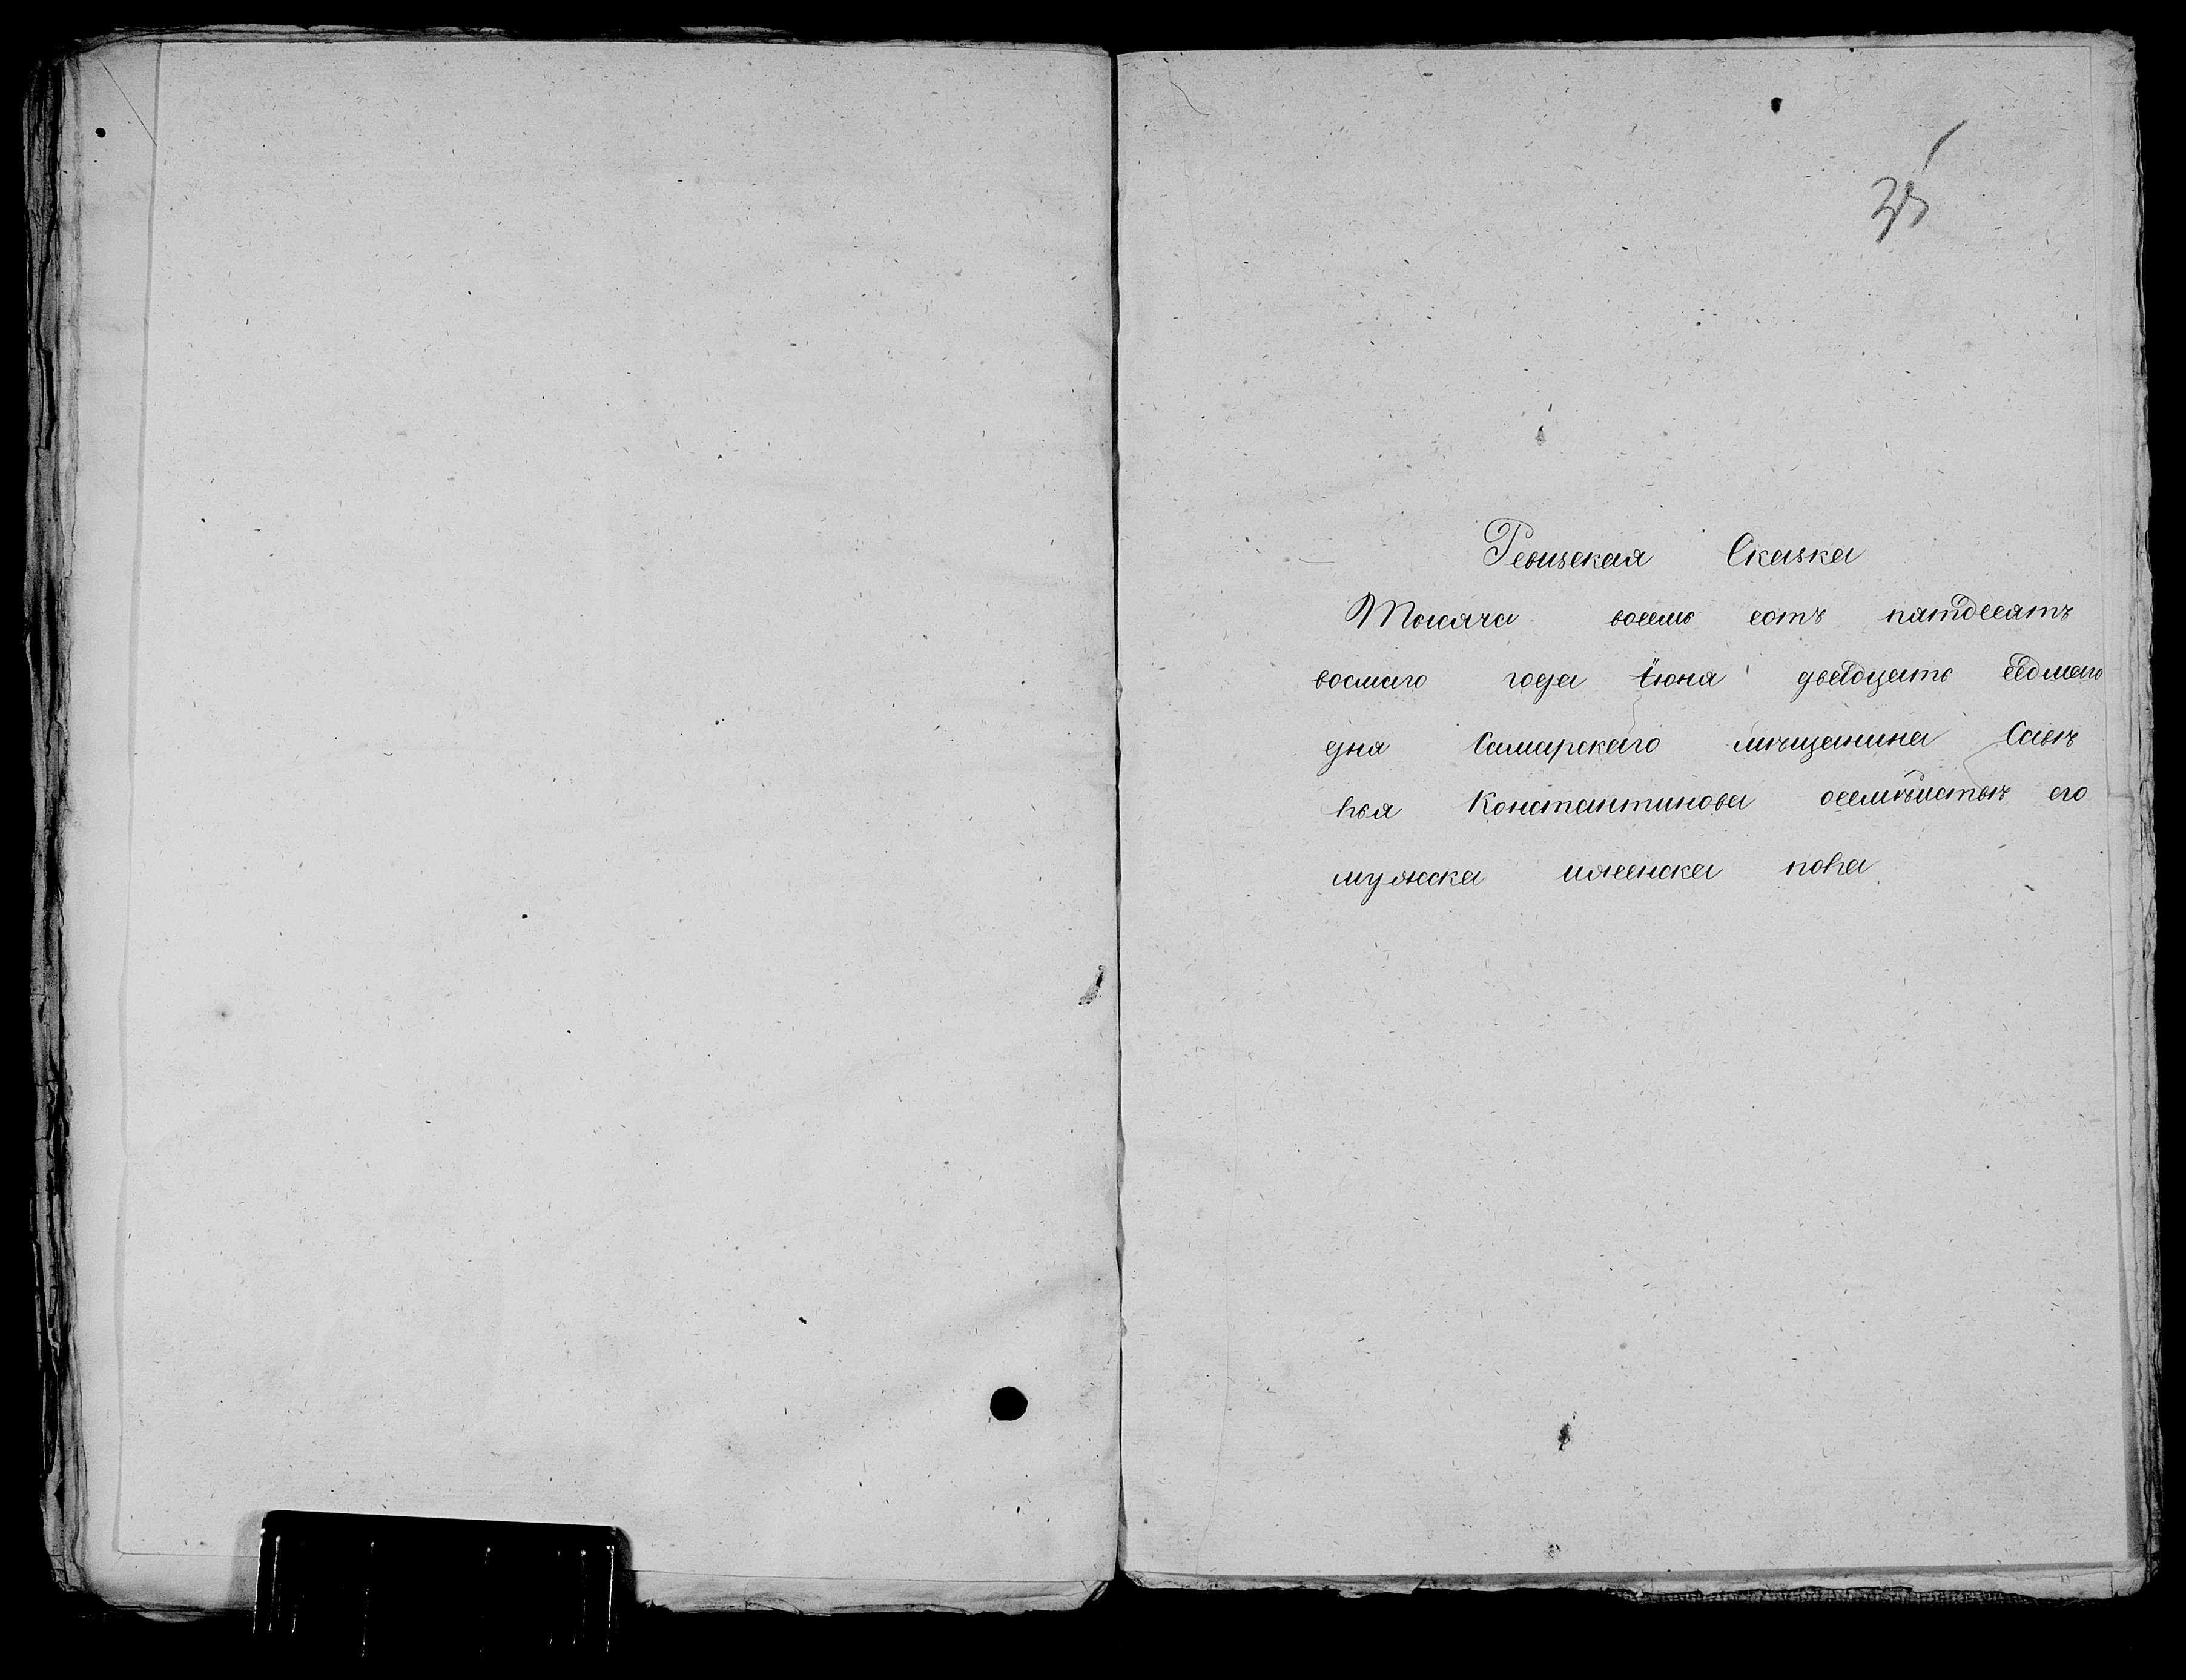 35
Ревизская Сказка
Тысяча восемь сотъ пятдесятъ
восмаго года Іюня двадцать седмаго
дня Самарскаго мѣщанина Савѣ
лья Константинова осемѣистьвѣ его
мужска иженска пола